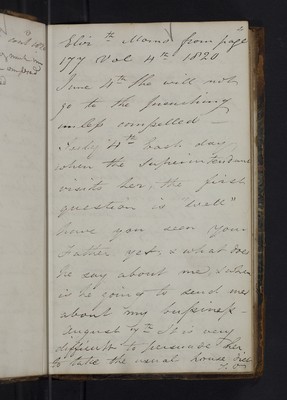 Eliz.th Mound from page
177 Vol 4th 1820
June 4th She will not
go to the preaching
unless compelled –
July 4th each day
when the Superintendance
visits her, the first
question is "Well"
have you seen your
Father yet, & what does
he say about me, & when
is he going to send me
about my business –
August 7th It is very
difficult to persuade her
to take the usual house diet